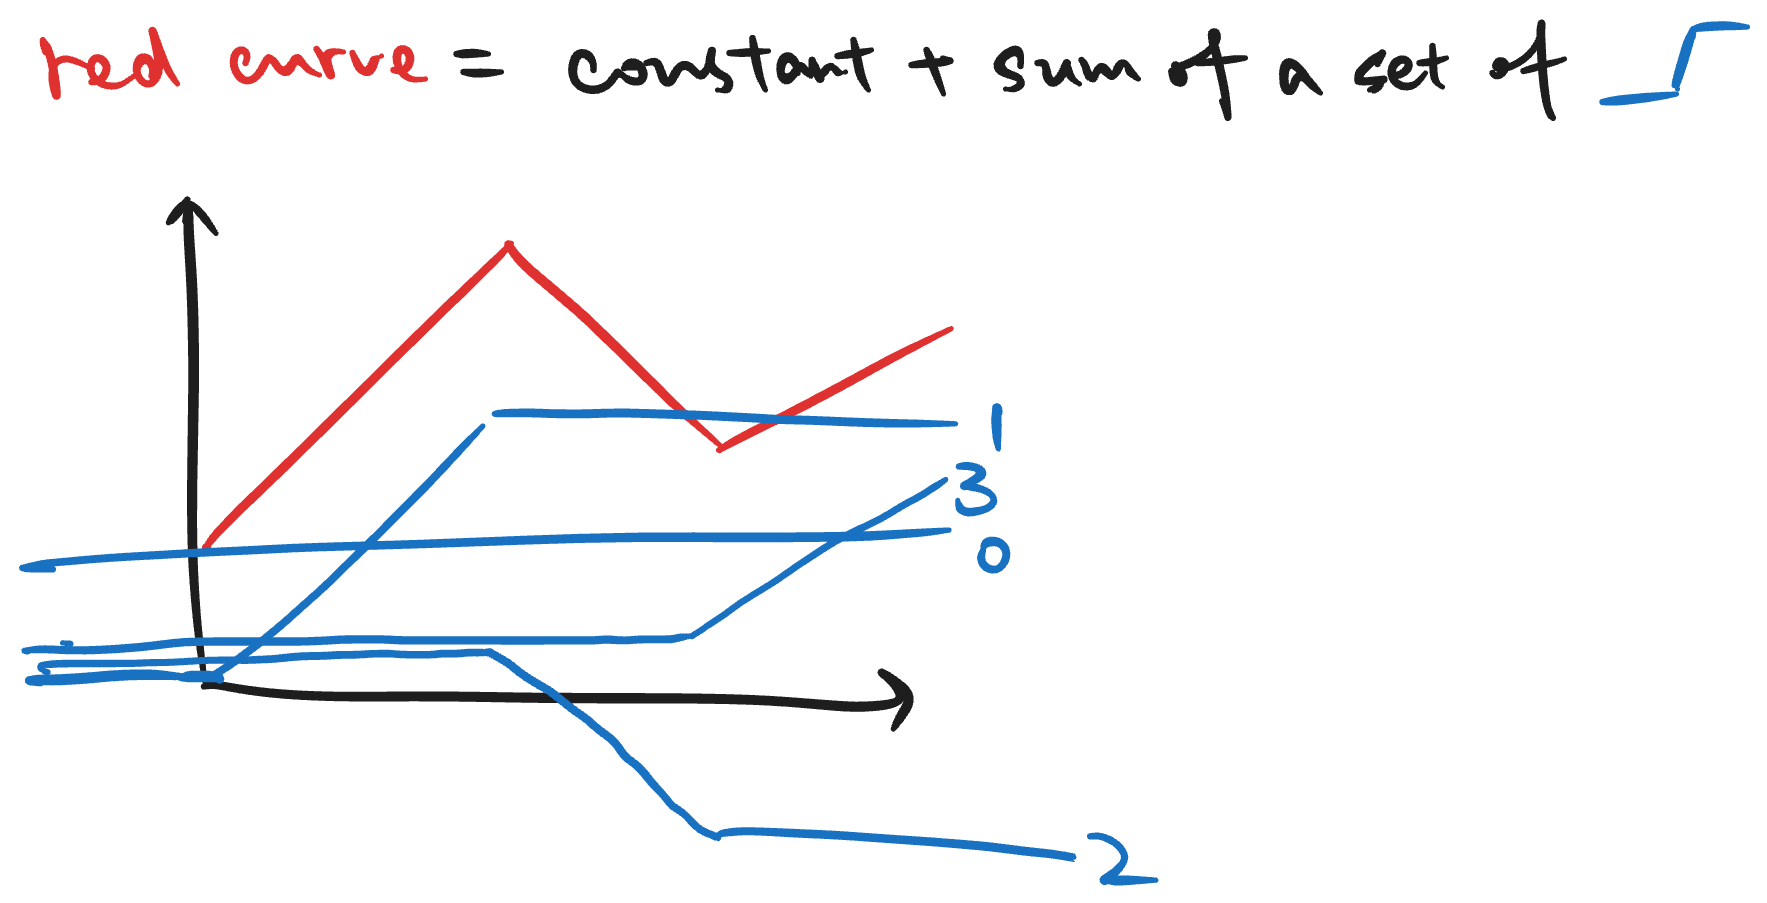 red curve = constant + sum of a set of
1
3
0
2